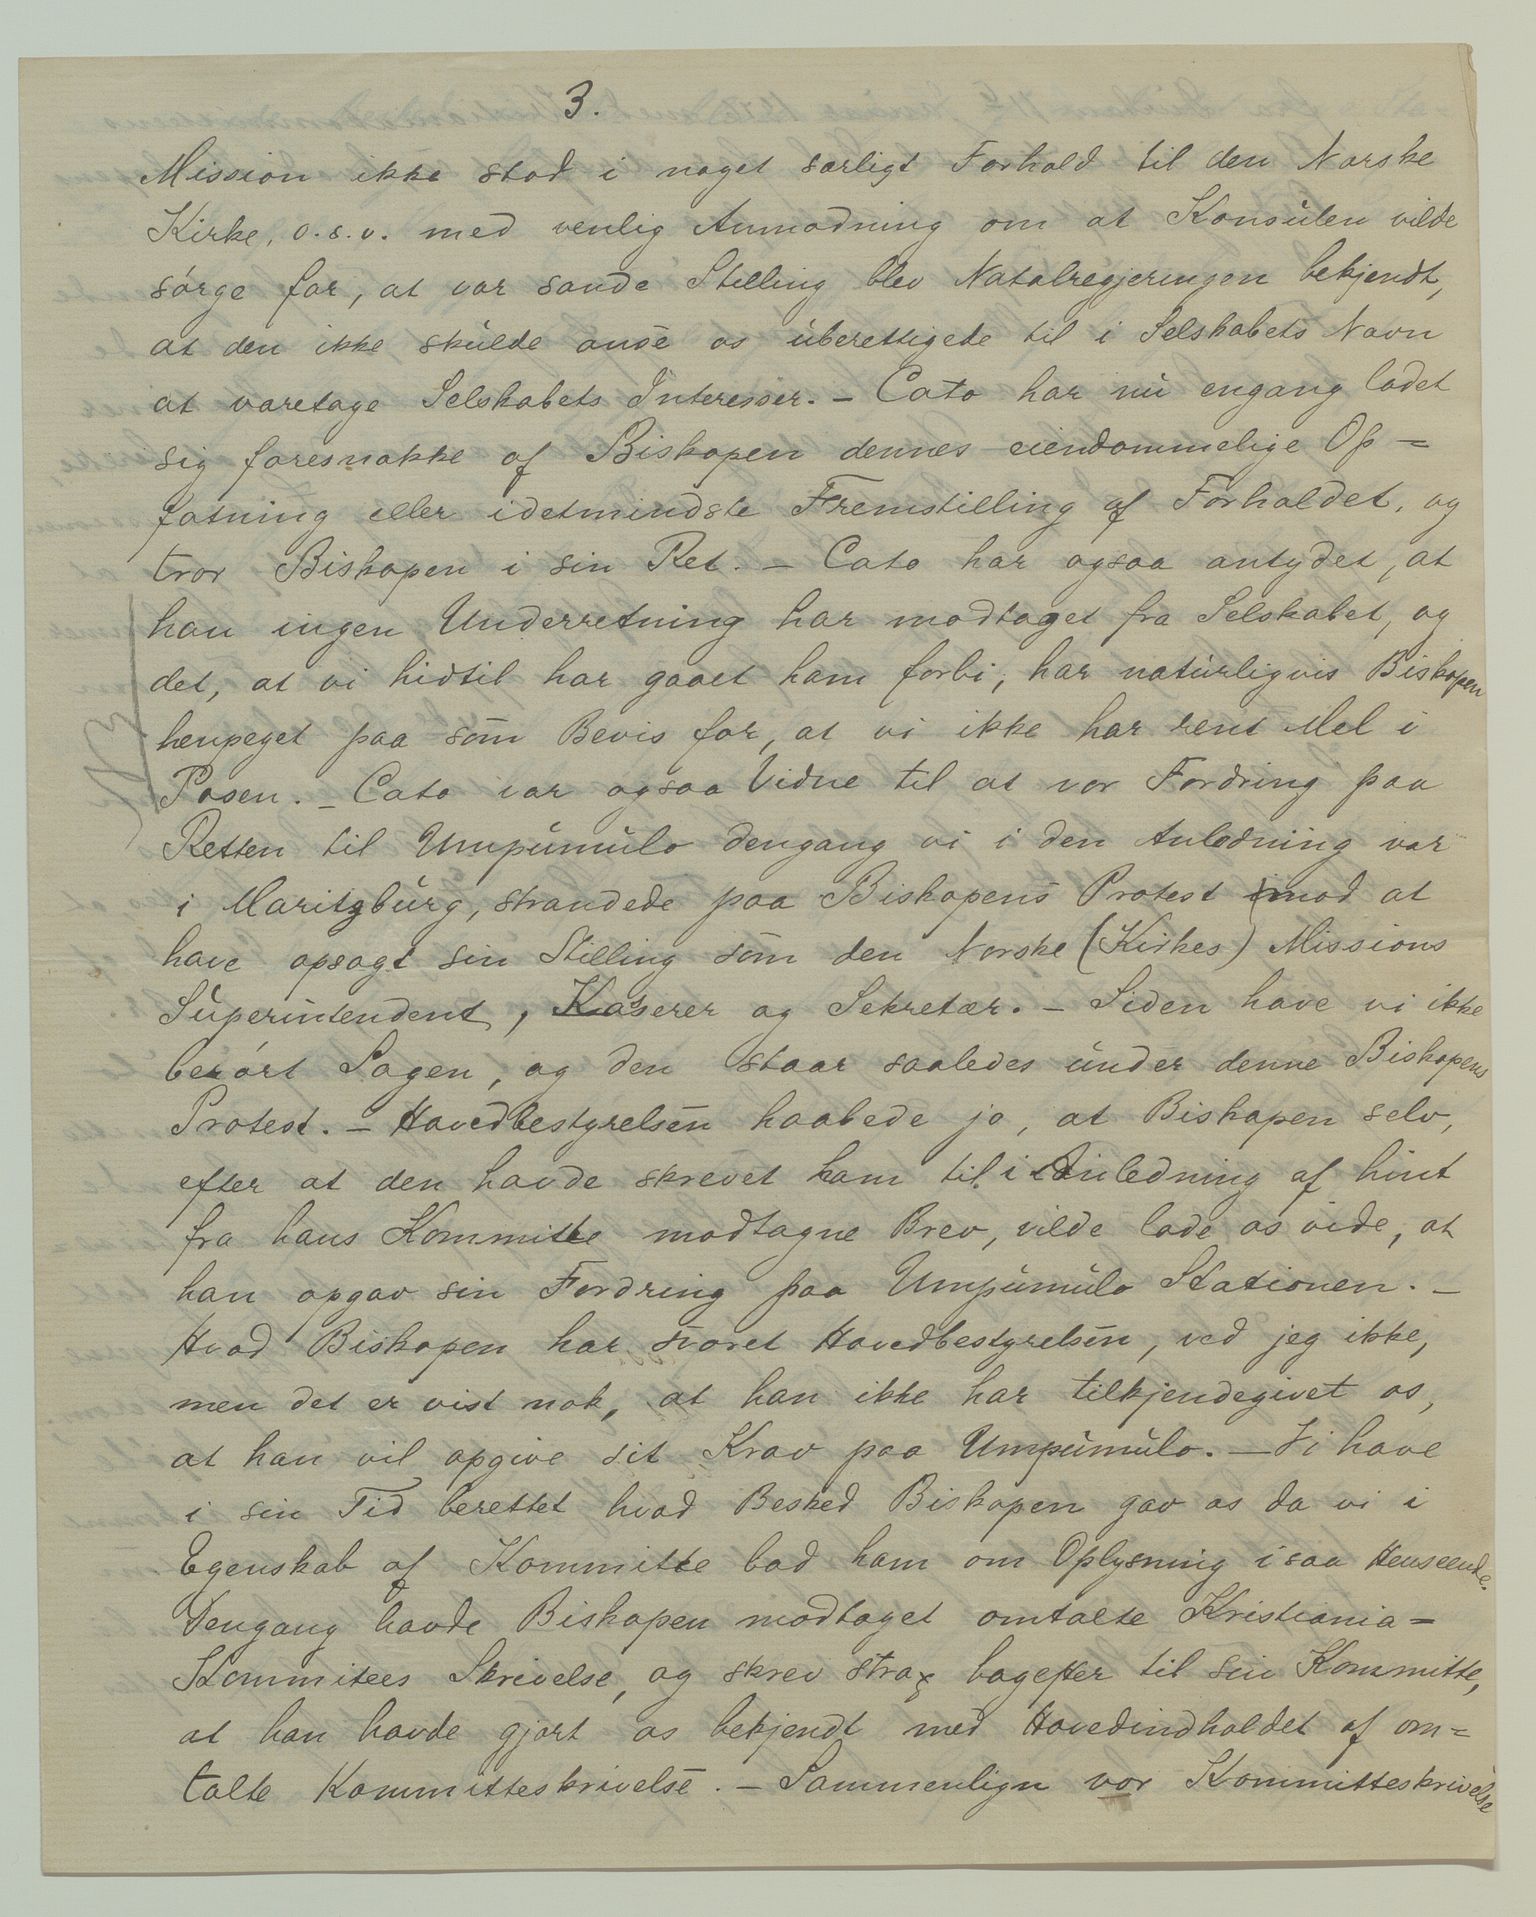 3.
Mission ikke stod i noget særligt Forhold til den Norske
Kirke, o.s.v. med venlig Anmodning om at Konsulen vilde
sørge for, at vor sande Stilling blev Natalregjeringen bekjendt,
at den ikke skulde ansé os uberettigede til i Selskabets Navn
at varetage Selskabets Interesser. – Cato har nu engang ladet
sig foresnakke af Biskopen dennes eiendommelige Op=
fatning eller idetmindste Fremstilling af Forholdet, og
tror Biskopen i sin Ret. – Cato har ogsaa antydet, at
han ingen Underretning har modtaget fra Selskabet, og
det, at vi hidtil har gaaet ham forbi, har naturligvis Biskopen
henpeget paa som Bevis for, at vi ikke har rent Mel i
Posen. – Cato var ogsaa Vidne til at vor Fordring paa
Retten til Umpumulo dengang vi i den Anledning var
i Maritzburg, strandede paa Biskopens Protest mod at
have opsagt sin Stilling som den Norske (Kirkes) Missions
Superintendent, Kasserer og Sekretær. – Siden have vi ikke
berørt Sagen, og den staar saaledes under denne Biskopens
Protest. – Hovedbestyrelsen haabede jo, at Biskopen selv,
efter at den havde skrevet ham til i Anledning af hint
fra hans Kommitte modtagne Brev, vilde lade os vide, at
han opgav sin Fordring paa Umpumulo Stationen. –
Hvad Biskopen har svaret Hovedbestyrelsen, ved jeg ikke,
men det er vist nok, at han ikke har tilkjendegivet os,
at han vil opgive sit Krav paa Umpumulo. – Vi have
i sin Tid berettet hvad Besked Biskopen gav os da vi i
Egenskab af Kommitte bad ham om Oplysning i saa Henseende.
Dengang havde Biskopen modtaget omtalte Kristiania=
Kommitees Skrivelse, og skrev strax bagefter til sin Kommitte,
at han havde gjort os bekjendt med Hovedindholdet af om=
talte Kommitteskrivelse. – Sammenlign vor Kommitteskrivelse